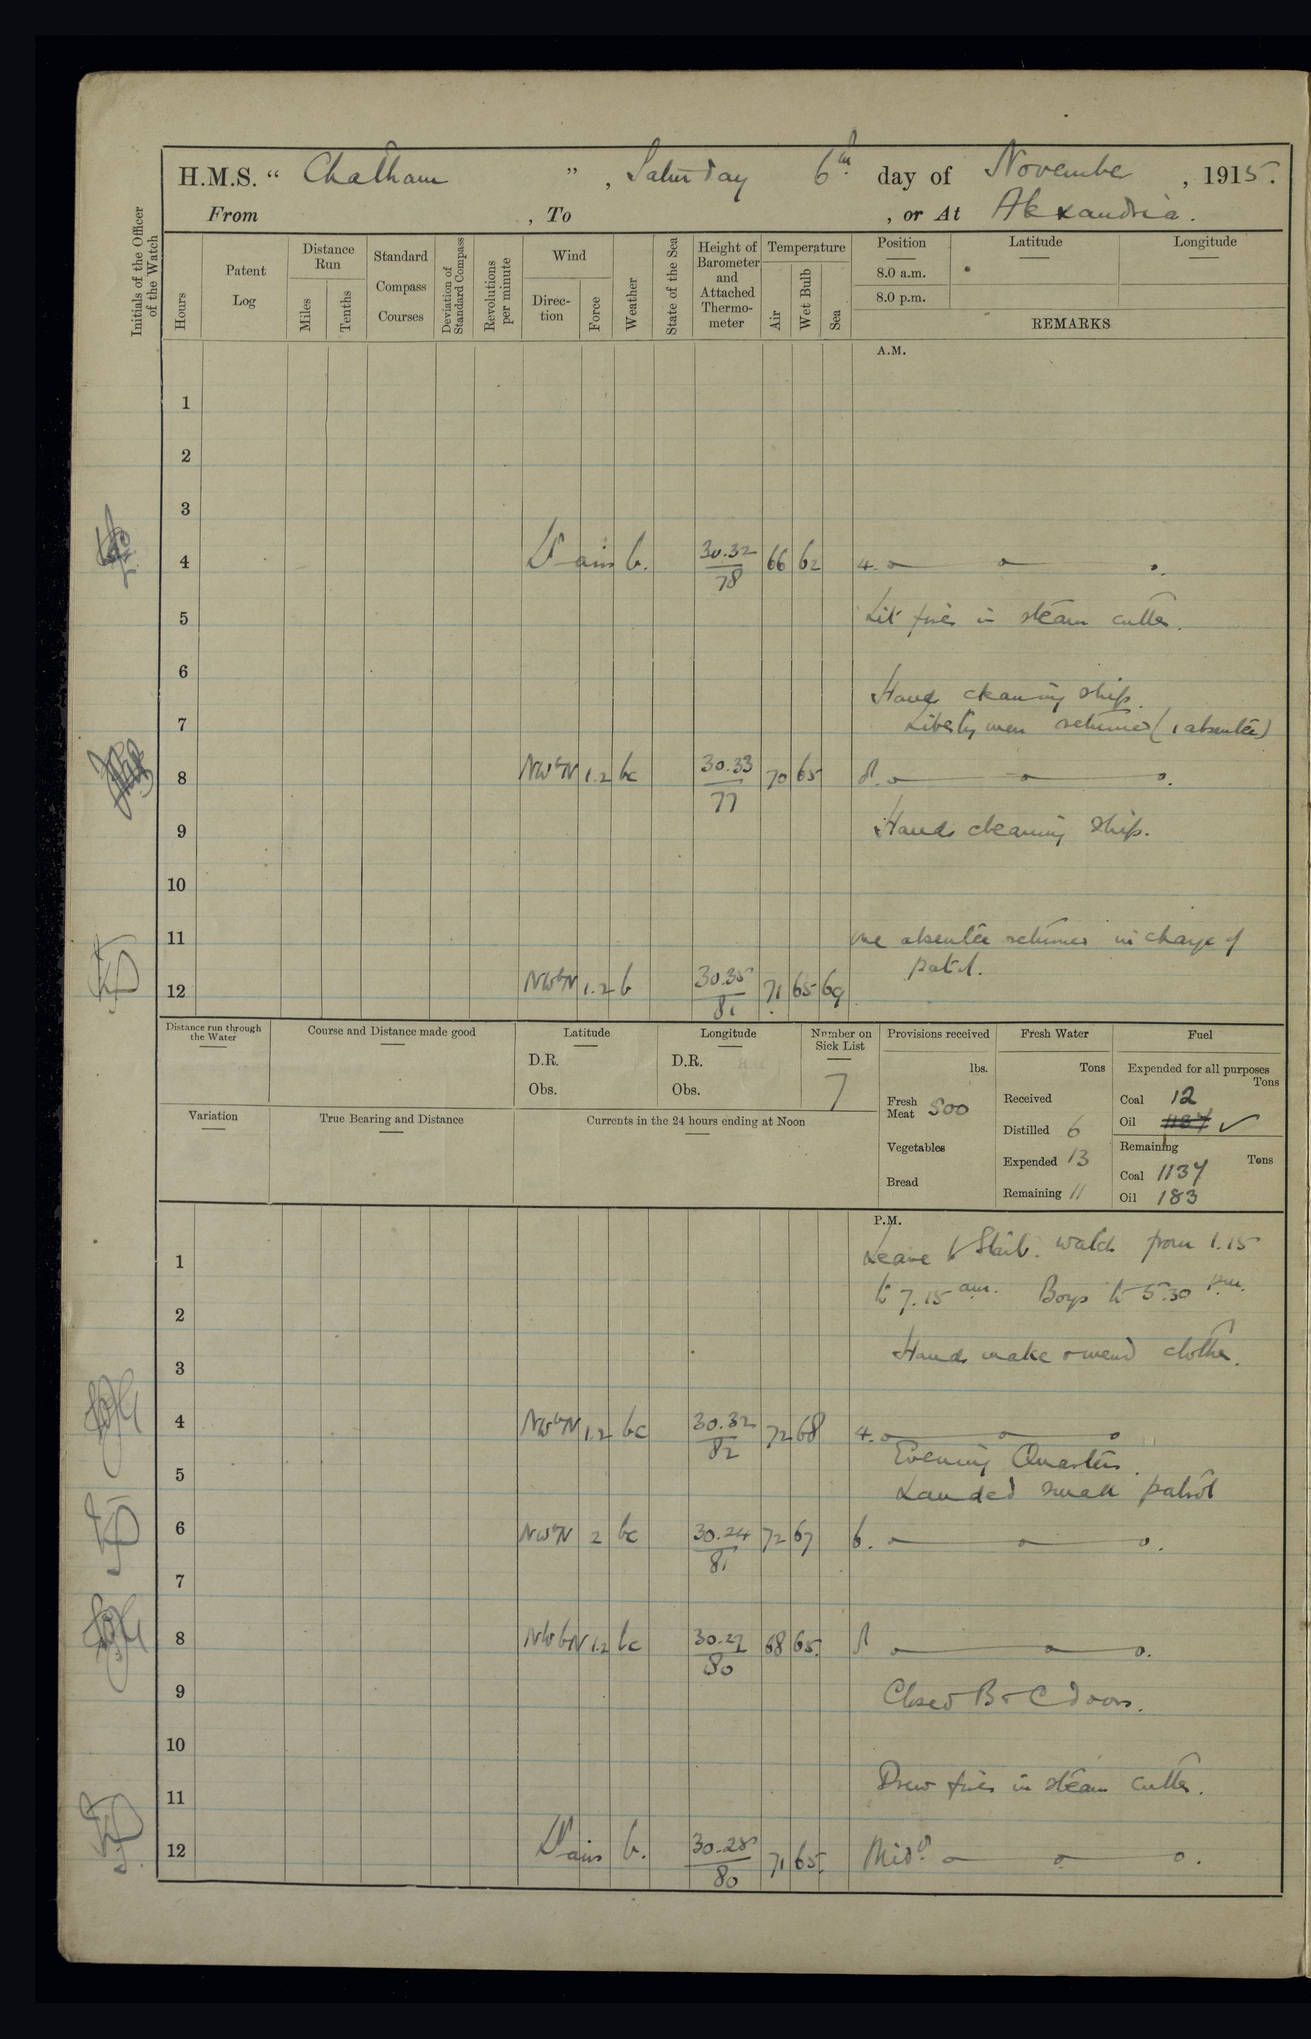 H.M.S. “ Chatham ” , Saturday 6th day of November , 1915.
From , To , or At Alexandria.
Initials of the Officer of the Watch
Hours
Patent Log
Distance Run
Miles
Tenths
Standard Compass Courses
Deviation of Standard Compass
Revolutions per minute
Wind
Direction
Force
Weather
State of the Sea
Height of Barometer and Attached Thermometer
Temperature
Air
Wet Bulb
Sea
Position Latitude Longitude
8.0 a.m.
8.0 p.m.
REMARKS
A.M.
1
2
3
4 Lt airs b. 30.32 / 78 66 62 4.
5 Lit fires in steam cutter.
6
Hands cleaning ship.
7 Liberty men returned (1 absentee)
8 NWbN 1.2 bc 30.33 / 77 70 65 8.
9 Hands cleaning ship.
10
11 One absentee returned in charge of
patrol.
12 NWbN 1.2 b 30.35 / 81 71 65 69
Distance run through the Water
Course and Distance made good
Latitude
D.R.
Obs.
Longitude
D.R.
Obs.
Number on Sick List
7
Provisions received
lbs.
Fresh Meat 500
Vegetables
Bread
Fresh Water
Tons
Received
Distilled 6
Expended 13
Remaining 11
Fuel
Expended for all purposes
Tons
Coal 12
Oil 1137 ✓
Remaining
Tons
Coal 1137
Oil 183
Variation
True Bearing and Distance
Currents in the 24 hours ending at Noon
P.M.
1 Leave to Starb. watch from 1.15
to 7.15 am. Boys to 5.30 pm.
2
3 Hands make & mend clothes.
4 NWbN 1.2 bc 30.32 / 82 72 68 4.
Evening Quarters.
5 Landed small patrol
6 NWbN 2 bc 30.24 / 81 72 67 6.
7
8 NWbN 1.2 bc 30.27 / 80 68 65. 8
9 Closed B & C doors.
10
11 Drew fires in steam cutter.
12 Lt airs b. 30.28 / 80 71 65. Midt.